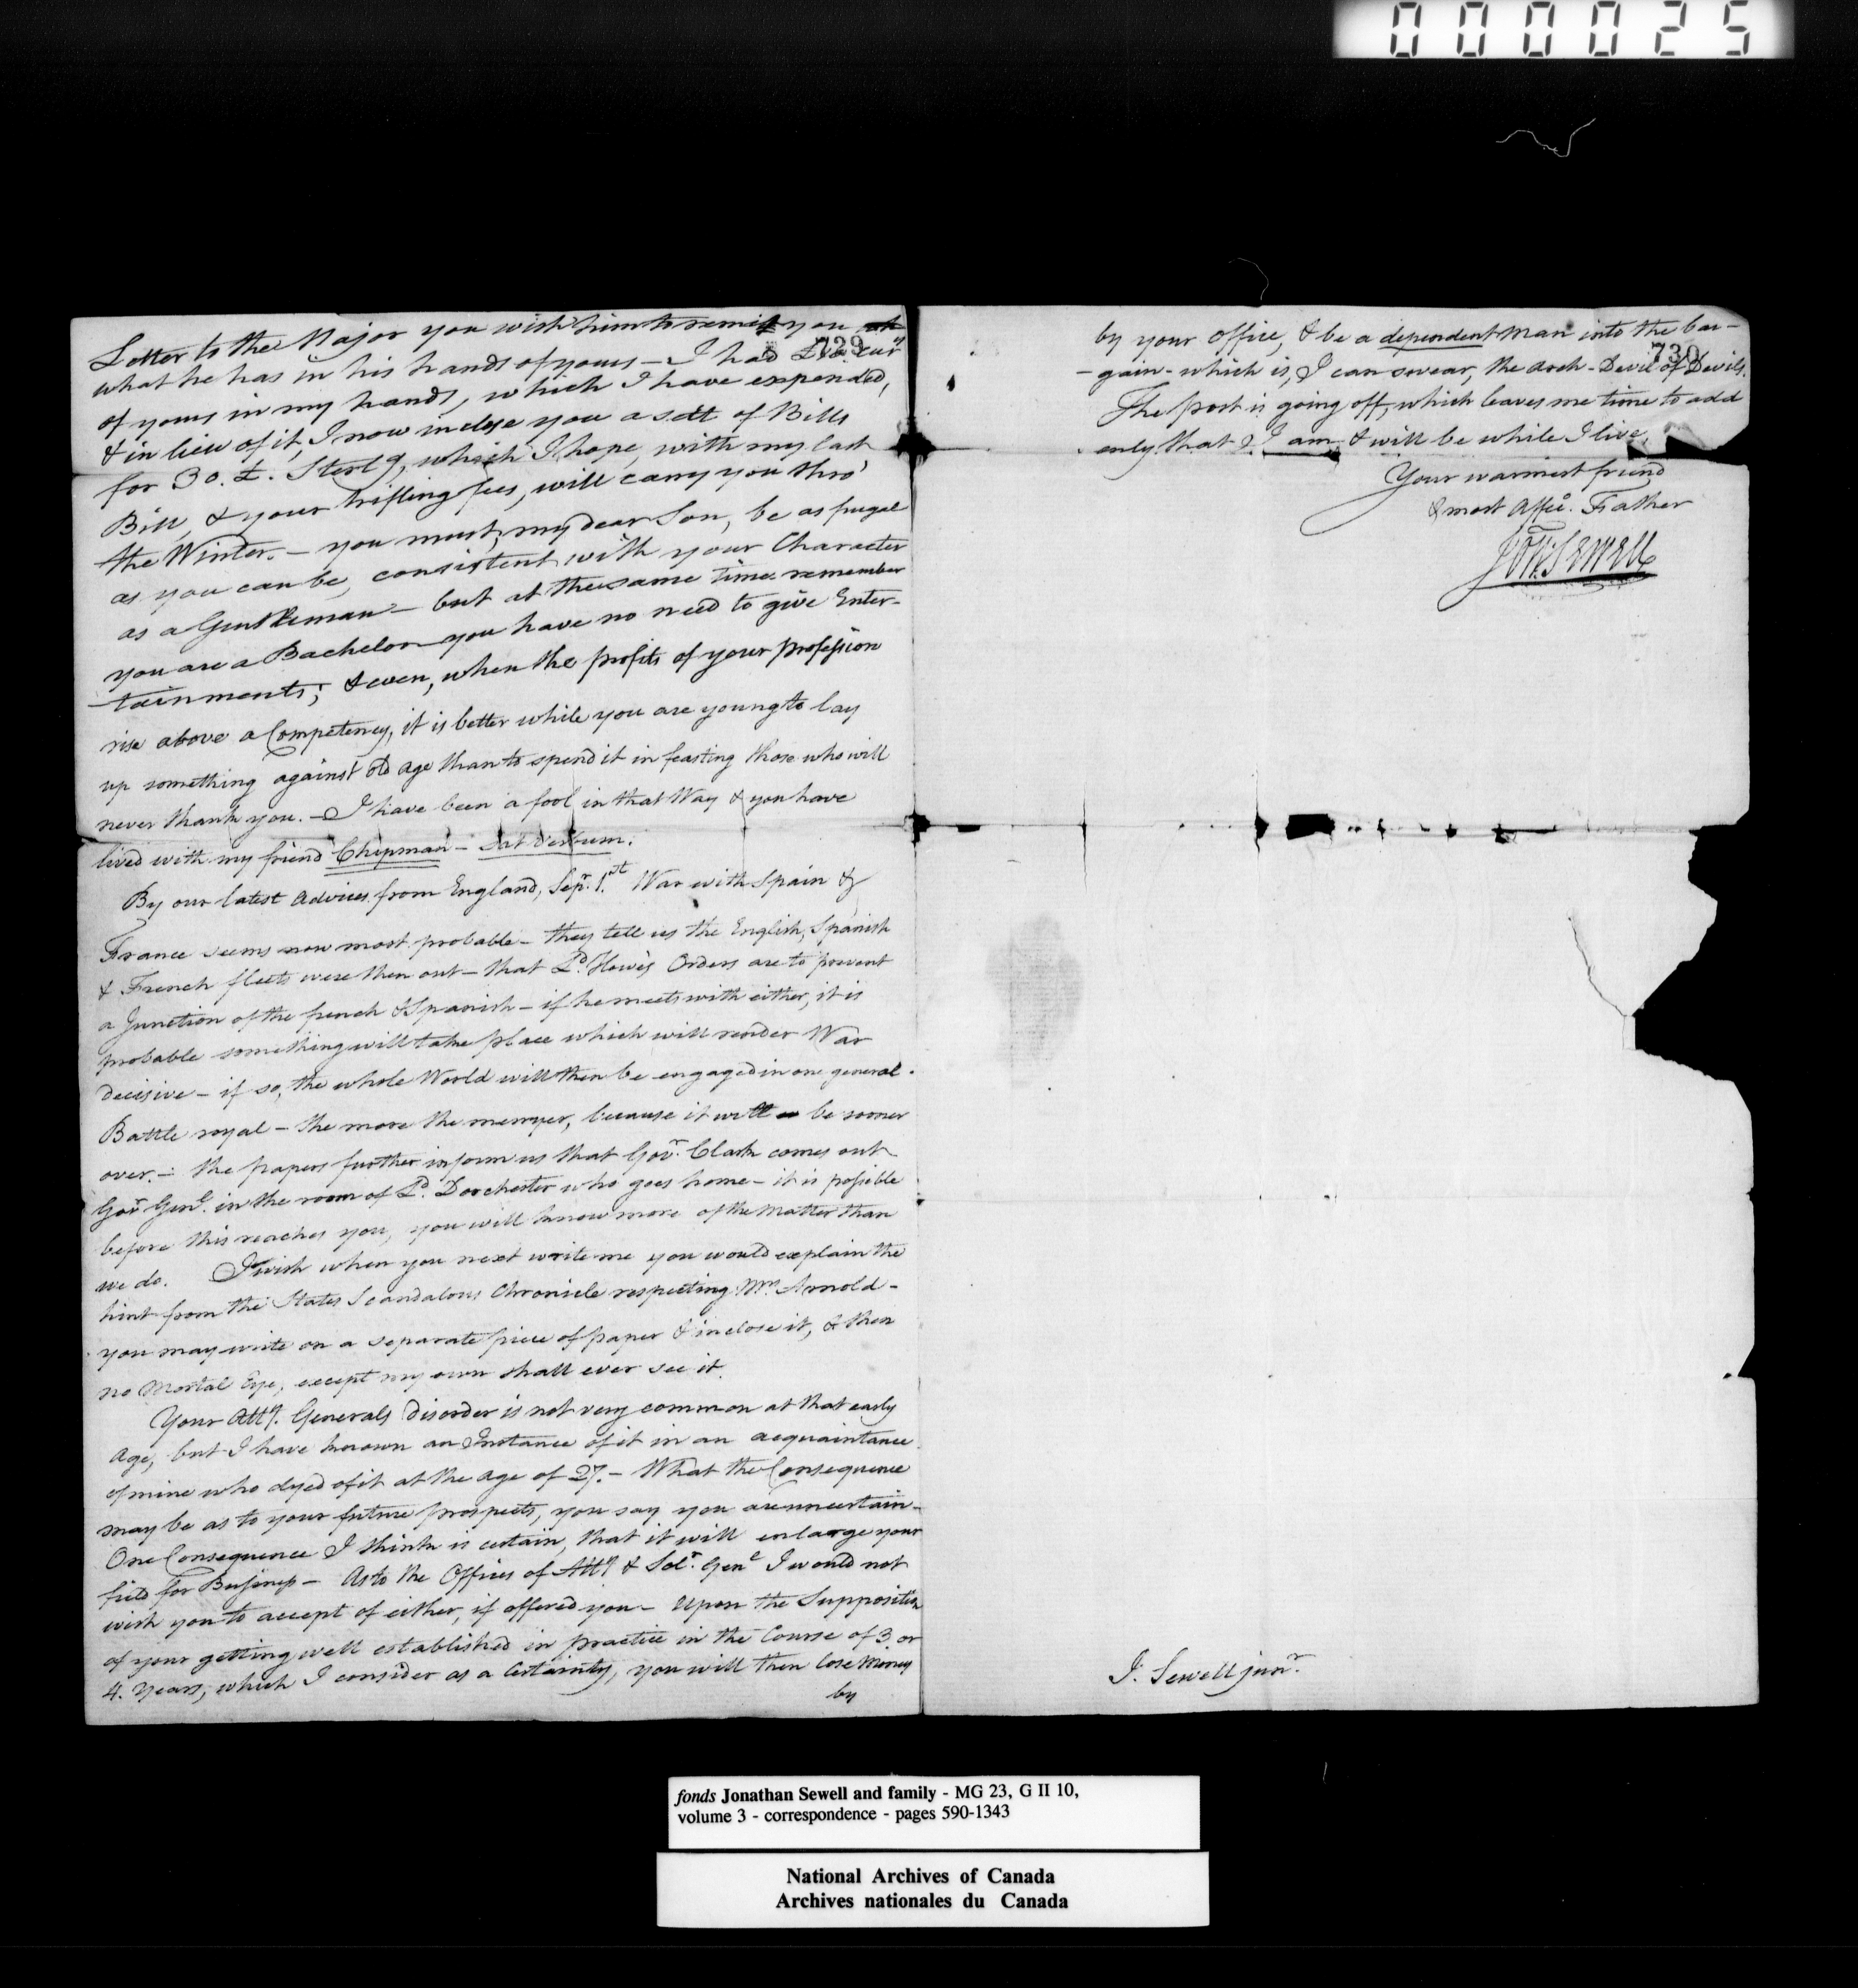 000025
729
Letter to the Major you wish him to remit you
what he has in his hands of yours — I had
of yours in my hands, which I have expended,
& in lieu of it, I now inclose you a sett of Bills
for 30. £. Sterlg, which I hope, with my last
Bill, & your trifling fees, will carry you thro'
the Winter. — you must, my dear Son, be as frugal
as you can be, consistent with your Character
as a Gentleman — but at the same time remember
you are a Bachelor you have no need to give Enter-
-tainments; & even, when the profits of your profession
rise above a Competency, it is better while you are young to lay
up something against old age than to spend it in feasting those who will
never thank you. — I have been a fool in that Way & you have
lived with my friend Chipman — Sat Verbum.
By our latest Advices from England, Sepr. 1.st War with Spain &
France seems now most probable — they tell us the English, Spanish
& French fleets were then out — that Ld. Howe's Orders are to prevent
a Junction of the french & Spanish — if he meets with either, it is
probable something will take place which will render War
decisive — if so, the whole World will then be engaged in one general
Battle royal — the more the merryer, because it will be sooner
over. — the papers further inform us that Govr. Clark comes out
Govr. Genl. in the room of Ld. Dorchester who goes home — it is possible
before this reaches you, you will know more of the Matter than
we do. I wish when you next write me you would explain the
hint from the States Scandalous Chronicle respecting Mrs. Arnold —
you may write on a separate piece of paper & inclose it, & then
no Mortal Eye, except my own shall ever see it.
Your Atty. Generals disorder is not very common at that early
Age, but I have known an Instance of it in an acquaintance
of mine who dyed of it at the age of 27. — What the Consequence
may be as to your future prospects, you say you are uncertain —
One Consequence I think is certain, that it will enlarge your
field for Business — As to the Offices of Atty & Solr. Genl I would not
wish you to accept of either, if offered you — Upon the Supposition
of your getting well established in practice in the Course of 3. or
4. Years, which I consider as a Certainty, you will then lose Money
by
730
by your office, & be a dependent Man into the bar-
-gain - which is, I can swear, the Arch-Devil of Devils.
The post is going off, which leaves me time to add
only that I am & will be while I live,
Your warmest friend
& most Affec. Father
Jon. Sewell
J. Sewell junr.
fonds Jonathan Sewell and family - MG 23, G II 10,
volume 3 - correspondence - pages 590-1343
National Archives of Canada
Archives nationales du Canada